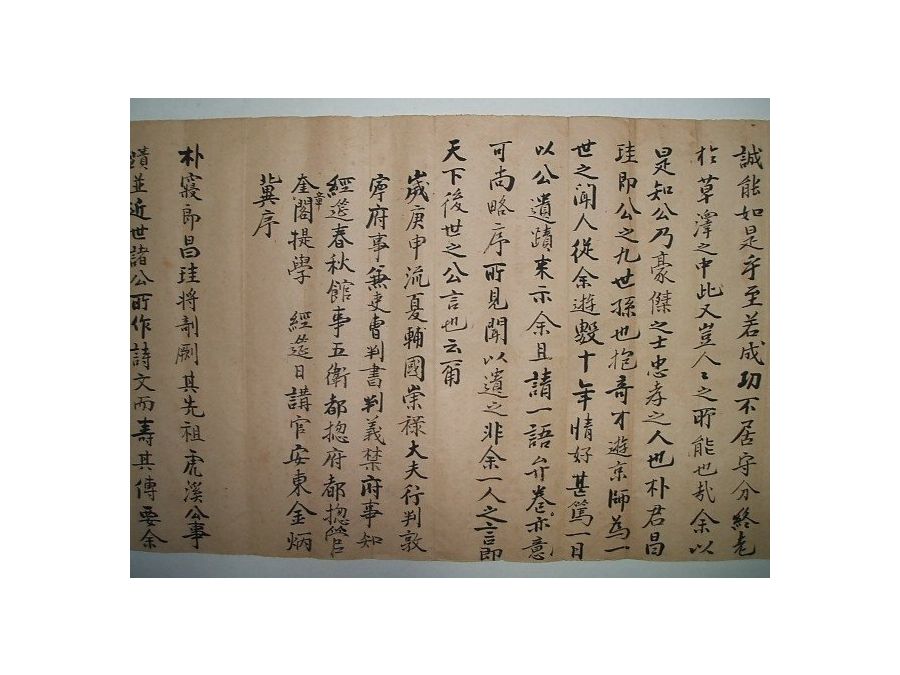 誠能如是乎至若成功不居守分終老
於草澤之中此又豈人〻之所能也哉余以
是知公乃豪傑之士忠孝之人也朴君昌
珪即公之九世孫也抱奇才遊京師為一
世之聞人從余遊數十年情好甚篤一日
以公遺蹟來示余且請一語弁卷亦意
可尚略序所見聞以遺之非余一人之言即
天下後世之公言也云爾
歲庚申流夏輔國崇祿大夫行判敦
寧府事兼吏曹判書判義禁府事知
經筵春秋館事五衛都摠府都摠管
奎章閣提學 經筵日講官安東金炳
冀序
朴寢郎昌珪將剞劂其先祖虎溪公事
蹟並近世諸公所作詩文而壽其傳要余